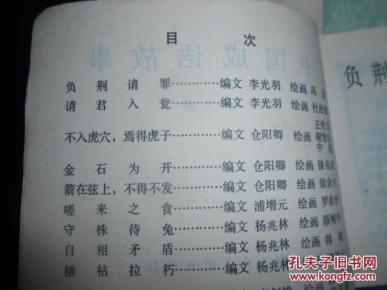 目 次
负荆请罪…………编文 李光羽 绘画
请君入瓮…………编文 李光羽 绘画 杜
不入虎穴,焉得虎子…………编文 仓阳卿 绘画
金石为开…………编文 仓阳卿 绘画 徐
箭在弦上,不得不发…………编文 仓阳卿 绘画 徐
嗟来之食…………编文 浦增元 绘画 罗希
守株待兔…………编文 杨兆林 绘画 颜
自相矛盾…………编文 杨兆林 绘画 韩
摧枯拉朽…………编文 杨兆林 绘画
负荆
孔夫子旧书网